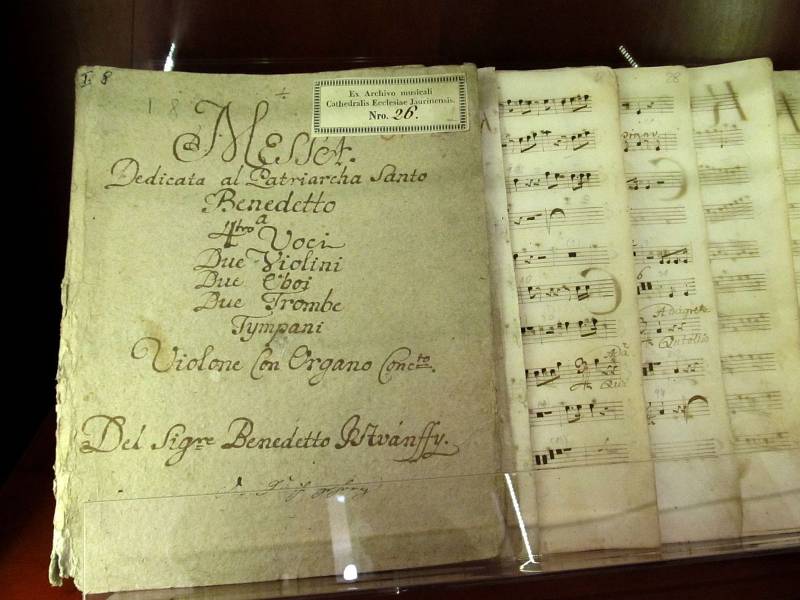 I. 8
Ex Archivo musicali
Cathedralis Ecclesiae Jaurinensis.
Nro. 26.
Messa.
Dedicata al Patriarcha Santo
Benedetto
4tro a Voci
Due Violini
Due Oboi
Due Trombe
Tympani
Violone Con Organo Concto.
Del Sigre Benedetto Istvánffy.
28